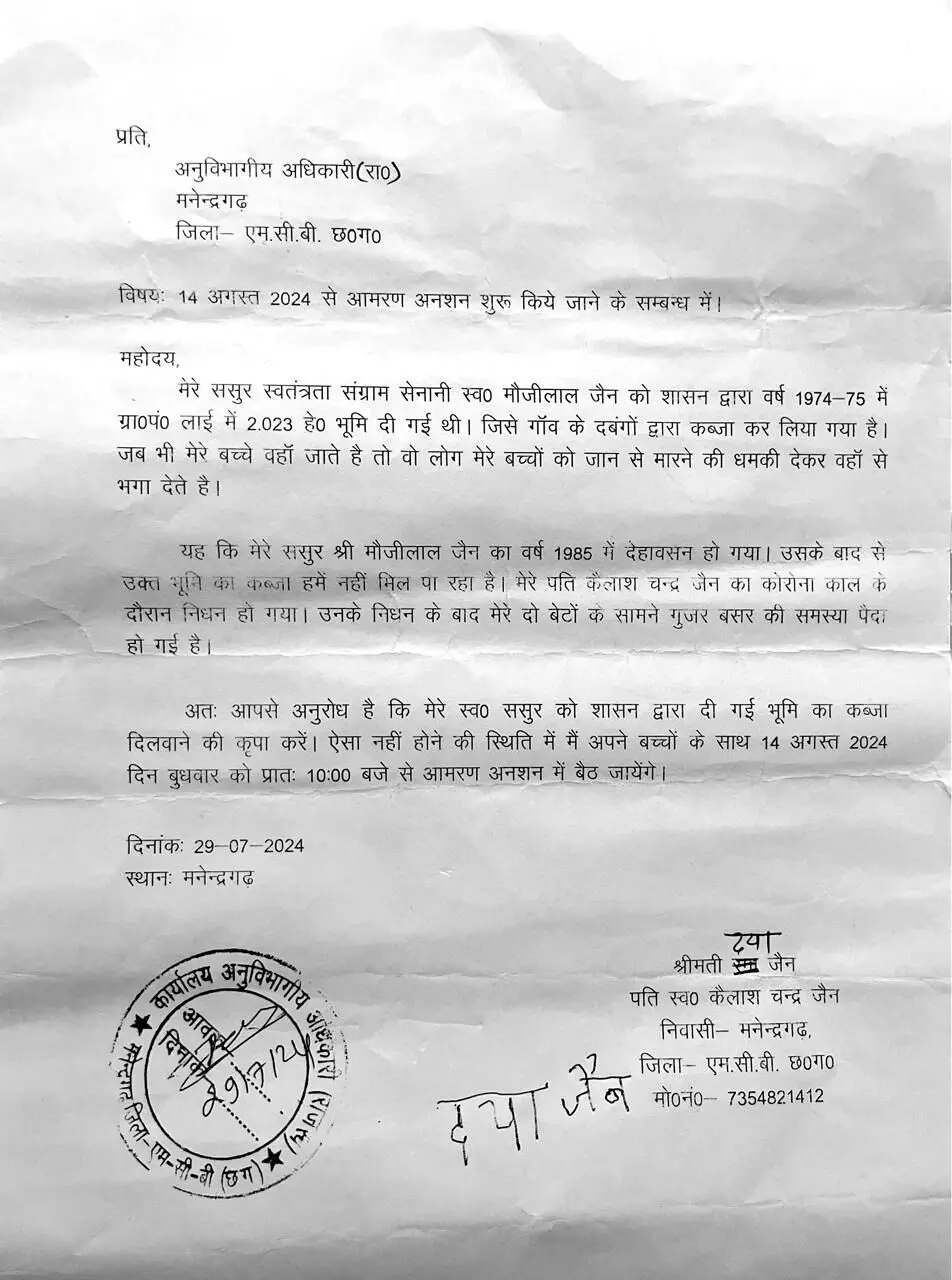 प्रति,
अनुविभागीय अधिकारी(रा0)
मनेन्द्रगढ़
जिला– एम.सी.बी. छ0ग0
विषयः 14 अगस्त 2024 से आमरण अनशन शुरू किये जाने के सम्बन्ध में।
महोदय,
मेरे ससुर स्वतंत्रता संग्राम सेनानी स्व0 मौजीलाल जैन को शासन द्वारा वर्ष 1974–75 में
ग्रा0पं0 लाई में 2.023 हे0 भूमि दी गई थी। जिसे गॉव के दबंगों द्वारा कब्जा कर लिया गया है।
जब भी मेरे बच्चे वहॉ जाते है तो वो लोग मेरे बच्चों को जान से मारने की धमकी देकर वहॉ से
भगा देते है।
यह कि मेरे ससुर श्री मौजीलाल जैन का वर्ष 1985 में देहावसन हो गया। उसके बाद से
उक्त भूमि का कब्जा हमें नहीं मिल पा रहा है। मेरे पति कैलाश चन्द्र जैन का कोरोना काल के
दौरान निधन हो गया। उनके निधन के बाद मेरे दो बेटों के सामने गुजर बसर की समस्या पैदा
हो गई है।
अतः आपसे अनुरोध है कि मेरे स्व0 ससुर को शासन द्वारा दी गई भूमि का कब्जा
दिलवाने की कृपा करें। ऐसा नहीं होने की स्थिति में मैं अपने बच्चों के साथ 14 अगस्त 2024
दिन बुधवार को प्रातः 10:00 बजे से आमरण अनशन में बैठ जायेंगे।
दिनांकः 29–07–2024
स्थानः मनेन्द्रगढ़
दया
श्रीमती जैन
पति स्व0 कैलाश चन्द्र जैन
निवासी– मनेन्द्रगढ़,
जिला– एम.सी.बी. छ0ग0
मो0नं0– 7354821412
दया जैन
कार्यालय अनुविभागीय अधिकारी
जिला–एम–सी–बी (छग)
आवक
दिनांक
29/7/24